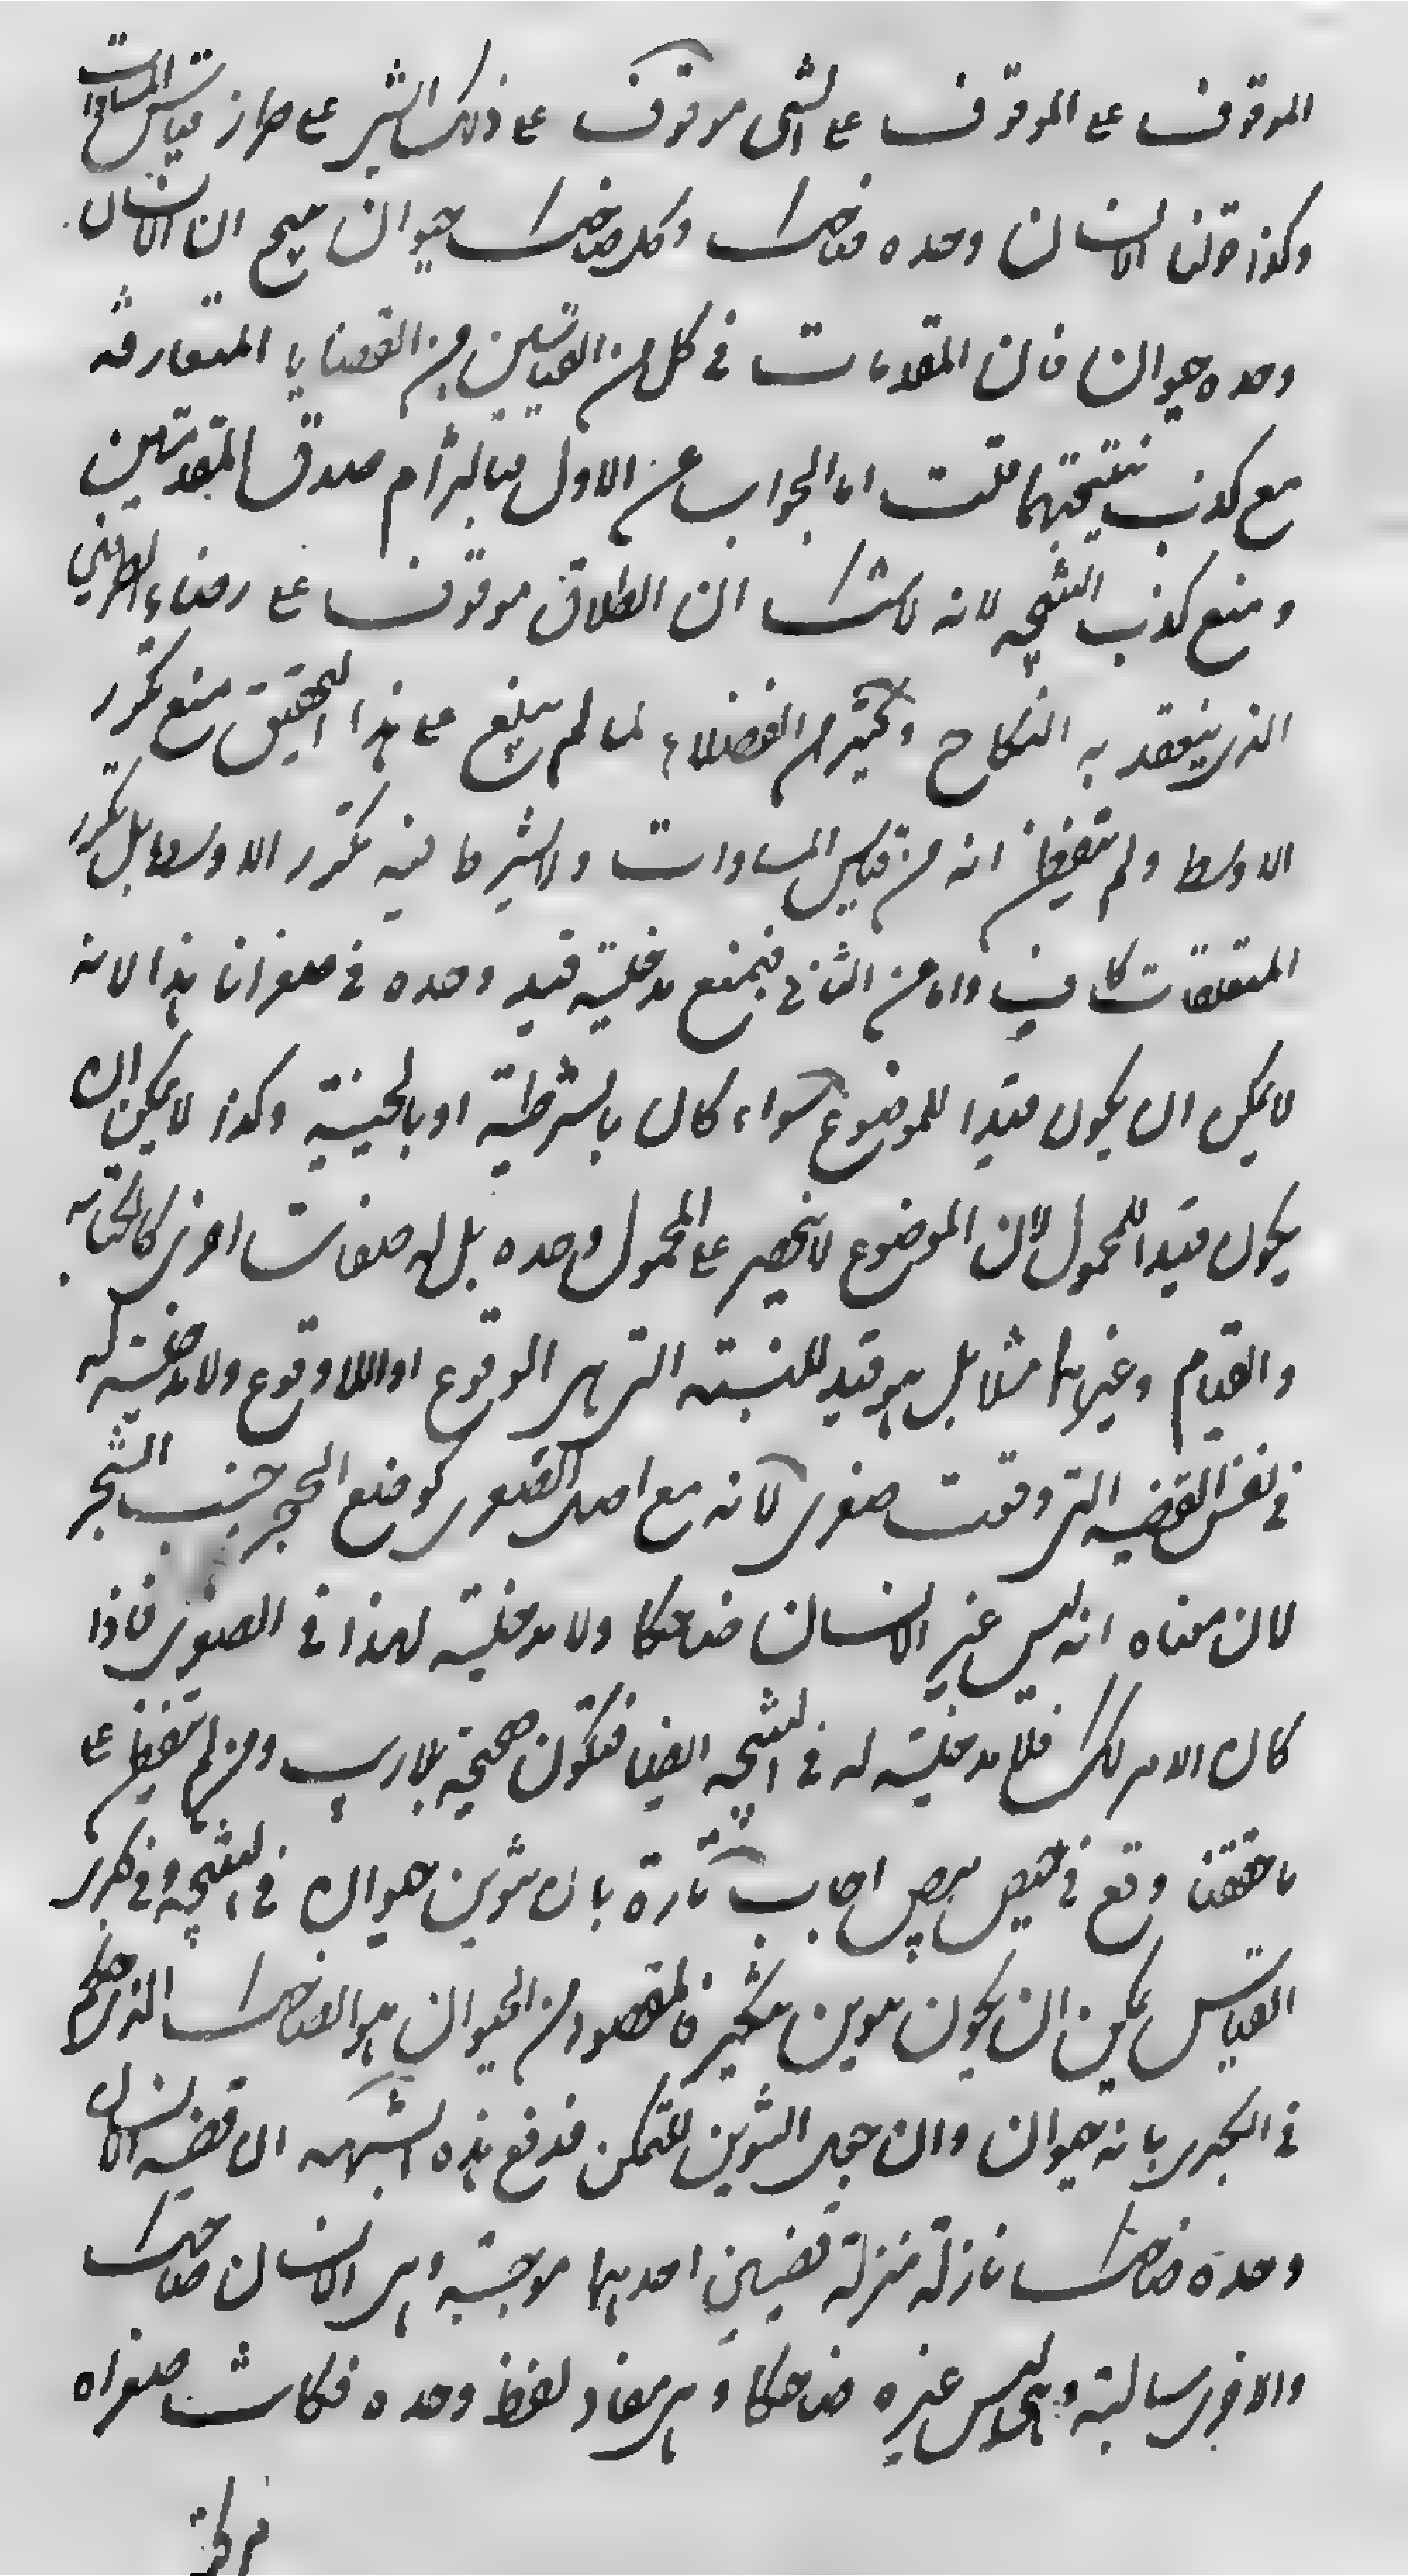 الموقوف على الموقوف على الشئ موقوف على ذلك الشئ على طراز قياس المساوات
وكذا قولنا الانسان وحده ضاحك وكل ضاحك حيوان ينتج ان الانسان
وحده حيوان فان المقدمات في كل من القياسين من القضايا المتعارفه
مع كذب نتيجتهما قلت اما الجواب عن الاول فبالتزام صدق المقدمتين
ومنع كذب النتيجه لانه لا شك ان الطلاق موقوف على رضاء الطرفين
الذي ينعقد به النكاح وكثير من الفضلاء لما لم يبلغ على هذا التحقيق منع تكرر
الاوسط ولم يتفطن انه من قياس المساوات ولا يشترط فيه تكرر الاوسط بل تكرر
المتعلقات كاف واما عن الثاني فبمنع مدخلية قيد وحده في صغرانا هذا لانه
لا يمكن ان يكون قيدا للموضوع سواء كان بالشرطية او بالحينية وكذا لا يمكن ان
يكون قيدا للمحمول لان الموضوع لا ينحصر على المحمول وحده بل له صفات اخرى كالكتابه
والقيام وغيرها مثلا بل هو قيد للنسبته التي هي الوقوع او اللاوقوع ولا مدخلية له
في نفس القضيه التي وقعت صغرى لانه مع اصل الصغرى كوضع الحجر جنب الشجر
لان معناه انه ليس غير الانسان ضاحكا ولا مدخلية لهذا في الصغرى فاذا
كان الامر كذلك فلا مدخلية له في النتيجه ايضا فتكون صحيحة بلا ريب ومن لم يتفطن على
ما حققنا وقع في حيص بيص اجاب تارة بان تنوين حيوان في النتيجه وفي كبرى
القياس يمكن ان يكون تنوين تنكير فالمقصود من الحيوان هو الضاحك الذي حكم
في الكبرى بانه حيوان وان جعل التنوين للتمكن فدفع هذه الشبهه ان قضيه الانسان
وحده ضاحك نازلة منزلة قضيتين احديهما موجبة وهي الانسان ضاحك
والاخرى سالبة وهي ليس غيره ضاحكا وهي مفاد لفظ وحده فكانت صغراه
مركبة